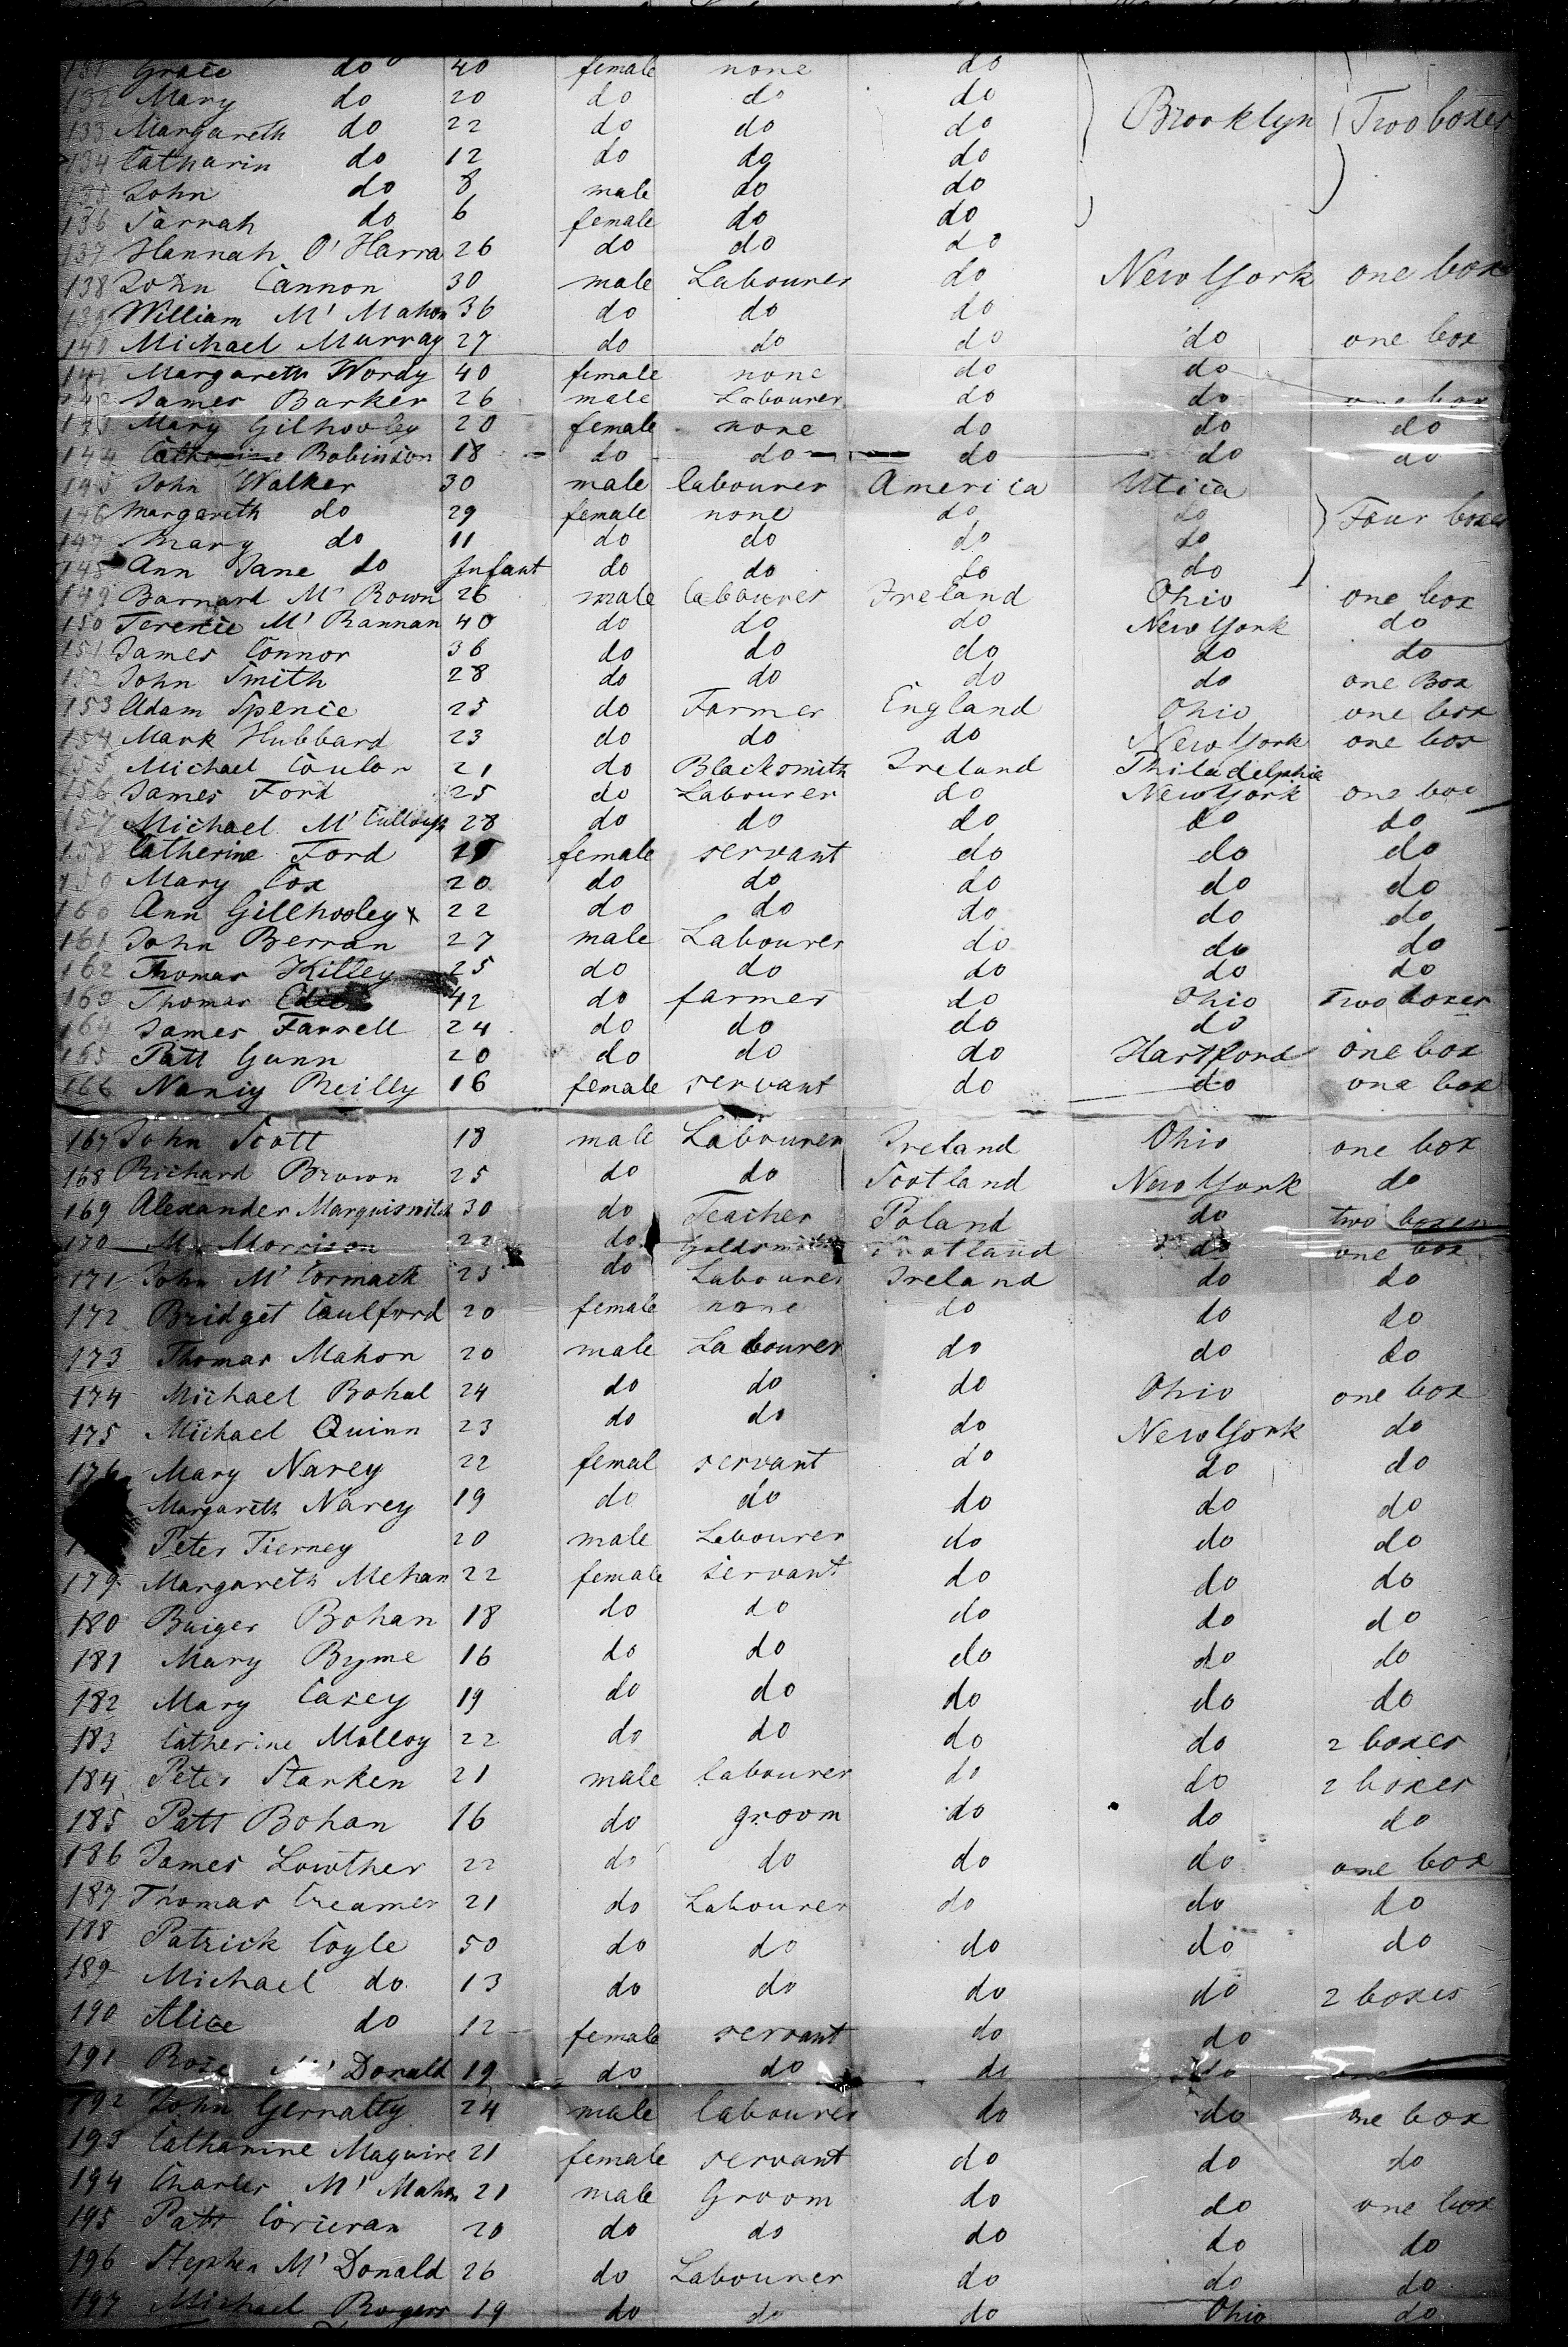 131 Grace do 40 female none do
132 Mary do 20 do do do
133 Margareth do 22 do do do Brooklyn Two boxes
134 Catharin do 12 do do do
135 John do 8 male do do
136 Sarrah do 6 female do do
137 Hannah O' Harra 26 do do do
138 John Cannon 30 male Labourer do New York one box
139 William M' Mahon 36 do do do
140 Michael Murray 27 do do do do one box
141 Margareth Wordy 40 female none do do
142 James Barker 26 male Labourer do do one box
143 Mary Gilhooley 20 female none do do do
144 Catharine Robinson 18 do do do do do
145 John Walker 30 male labourer America Utica
146 Margareth do 29 female none do do Four boxes
147 Mary do 11 do do do do
148 Ann Jane do Infant do do do do
149 Barnard M' Rown 26 male labourer Ireland Ohio one box
150 Terence M' Rannan 40 do do do New York do
151 James Connor 36 do do do do do
152 John Smith 28 do do do do one Box
153 Adam Spence 25 do Farmer England Ohio one box
154 Mark Hubbard 23 do do do New York one box
155 Michael 21 do Blacksmith Ireland Philadelphia
156 James Ford 25 do Labourer do New York one box
157 Michael M' Cullough 28 do do do do do
158 Catherine Ford female servant do do do
159 Mary Cox 20 do do do do do
160 Ann Gillhooley x 22 do do do do do
161 John Berran 27 male Labourer do do do
162 Thomas Killey 25 do do do do do
163 Thomas 42 do farmer do Ohio Two boxes
164 James Farrell 24 do do do do
165 Patt Gunn 20 do do do Hartford one box
166 Nancy Reilly 16 female servant do do one box
167 John Scott 18 male Labourer Ireland Ohio one box
168 Richard Brown 25 do do Scotland New York do
169 Alexander 30 do Teacher Poland do two boxes
170 M. Morrison 22 do Goldsmith Scotland do one box
171 John M' Cormack 25 do Labourer Ireland do do
172 Bridget Caulford 20 female none do do do
173 Thomas Mahon 20 male Labourer do do do
174 Michael Bohal 24 do do do Ohio one box
175 Michael Quinn 23 do do do New York do
176 Mary Narey 22 femal servant do do do
Margareth Narey 19 do do do do do
Peter Tierney 20 male Labourer do do do
179 Margareth Mehan 22 female servant do do do
180 Bohan 18 do do do do do
181 Mary Byrne 16 do do do do do
182 Mary Casey 19 do do do do do
183 Catherine Molloy 22 do do do do 2 boxes
184 Peter Starken 21 male labourer do do 2 boxes
185 Patt Bohan 16 do groom do do do
186 James Lowther 22 do do do do one box
187 Thomas Creamer 21 do Labourer do do do
188 Patrick Coyle 50 do do do do do
189 Michael do 13 do do do do 2 boxes
190 Alice do 12 female servant do do
191 Rose M' Donald 19 do do do do
192 John Gerralty 24 male labourer do do one box
193 Catharine Maguire 21 female servant do do do
194 Charles M' Mahon 21 male Groom do do one box
195 Patt Corieran 20 do do do do do
196 Stephen M' Donald 26 do Labourer do do do
197 Michael Rogers 19 do do do Ohio do